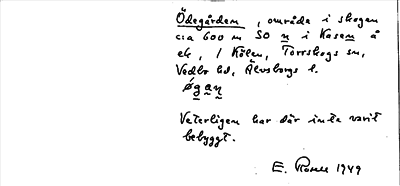 Ödegården, område i skogen
c:a 600 m SO n i Kasen å
ek, / Kölen, Torrskogs sn,
Vedbo hd, Älvsborgs l.
øgan
Veterligen har där inte varit
bebyggt.
E. 1949